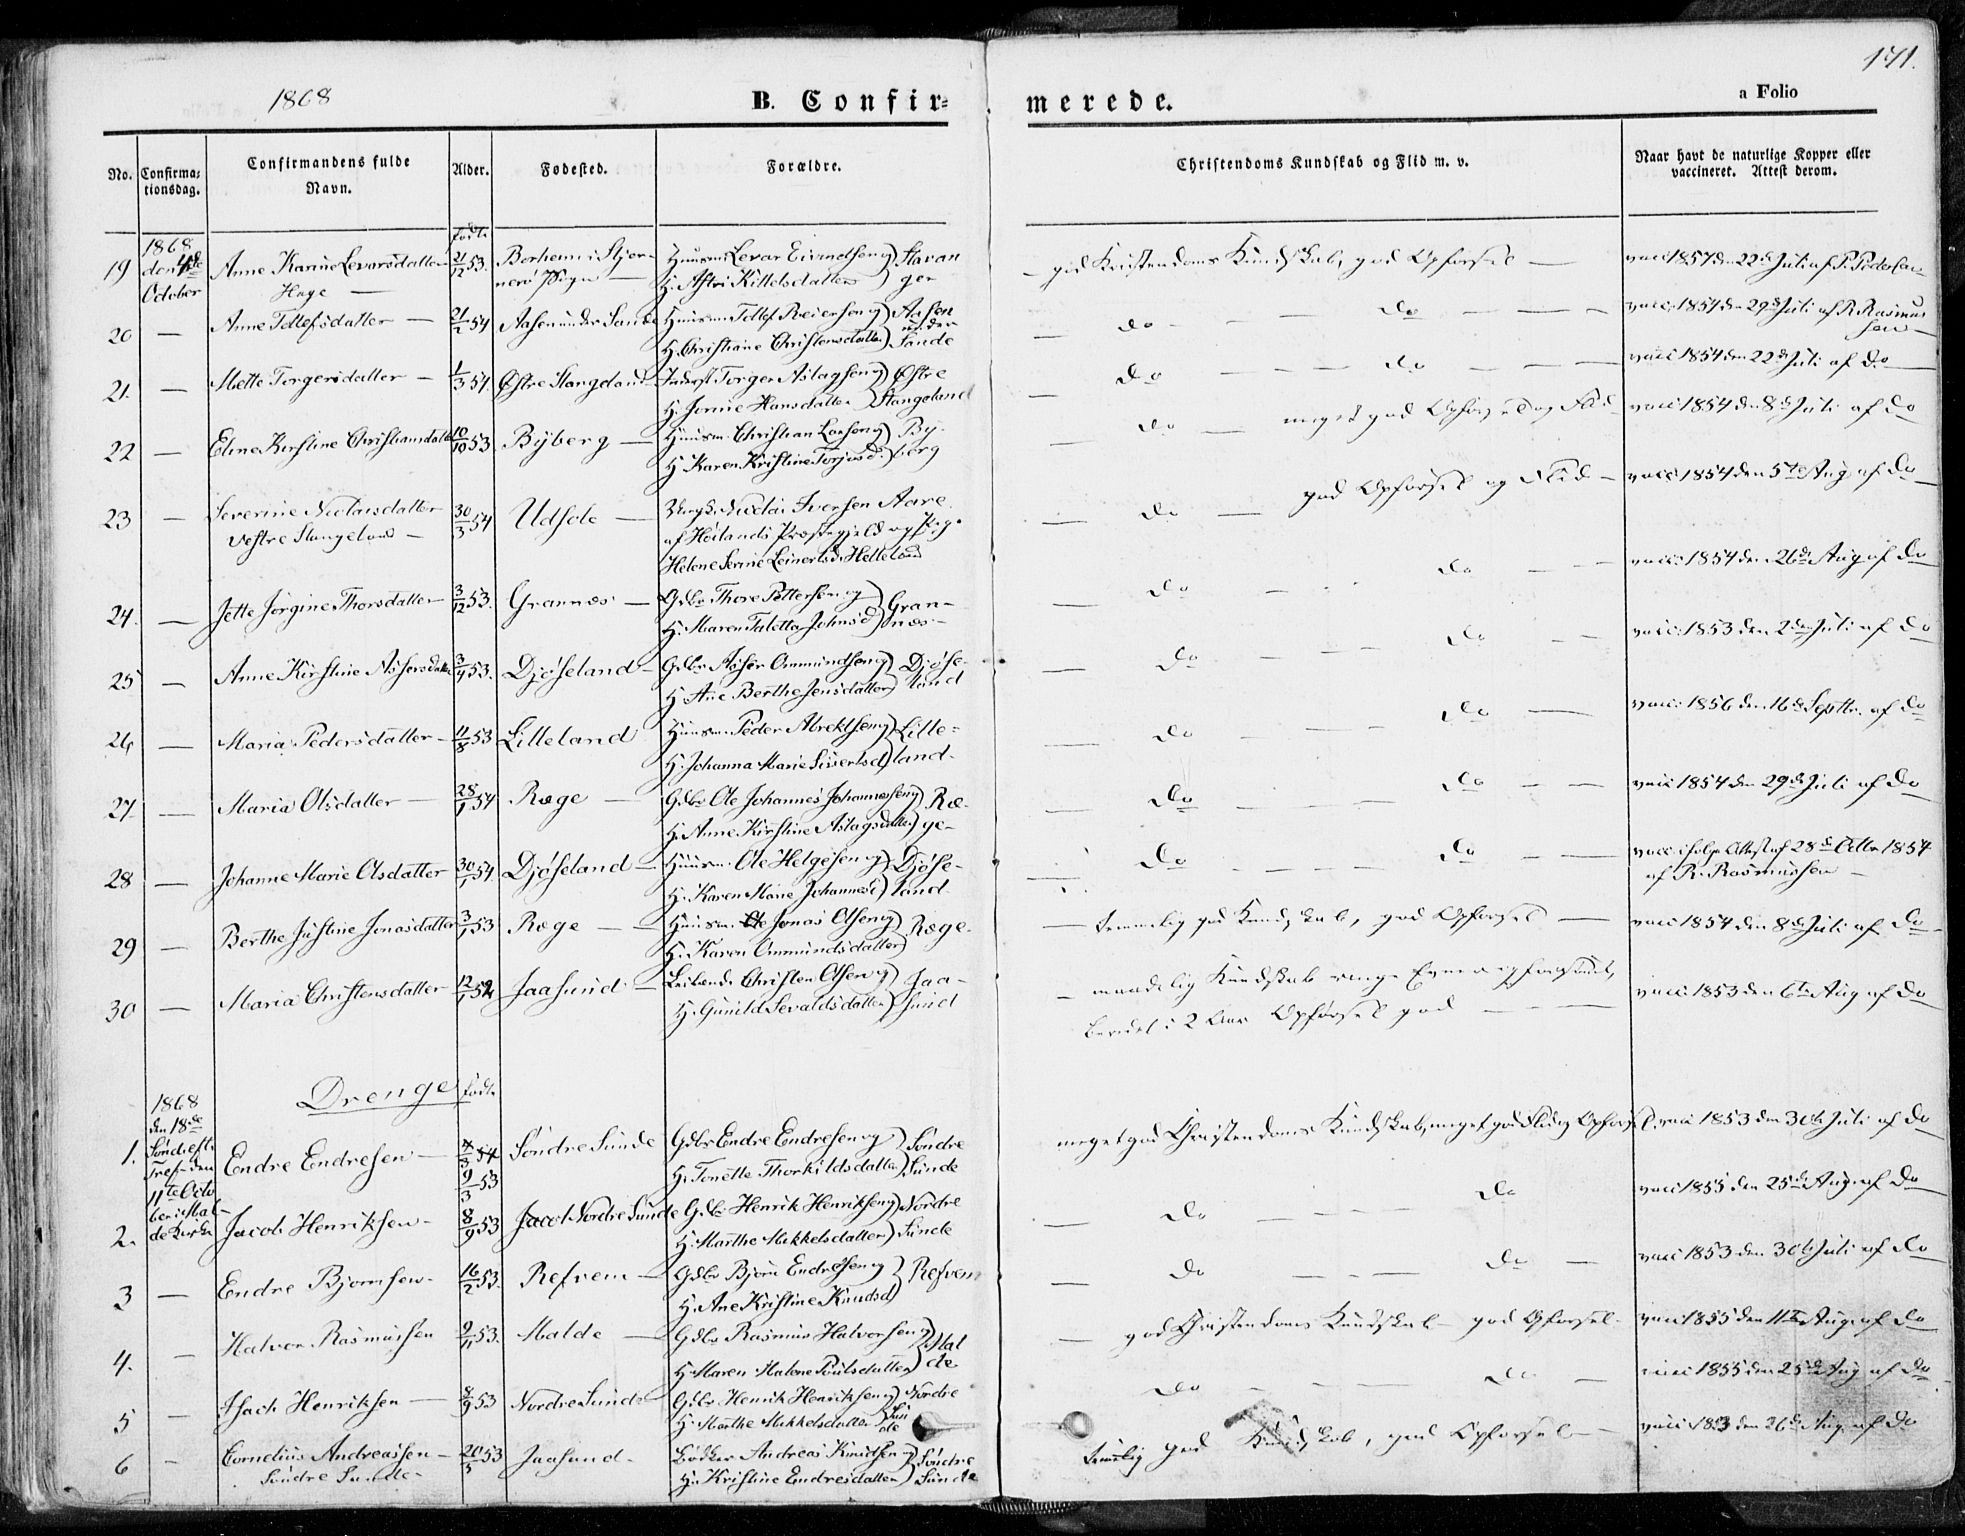 1868
B. Confir=
merede.
a Folio
171.
No.
Confirma=
tionsdag.
Confirmandens fulde
Navn.
Alder.
Fødested.
Forældre.
Christendoms Kundskab og Flid m. v.
Naar havt de naturlige Kopper eller
vaccineret. Attest derom.
1868
den 4de
October
født
19 Anne Karine Levorsdatter 21/12 53. Borheim i Stjer- Huusm. Levor Eivindsen og Stavan
Hage — nerø Sogn — H. Astri Kittelsdatter ger
— god Kristendoms Kundskab, god Opførsel — vacc 1857 den 22de Juli af P. Pedersen
20 — Anne Tollefsdatter — 21/2 54 Aasen under Sande Huusm. Tollef Reiersen og Aasen
H. Christiane Christensdatter under Sande
— do — do — vacc. 1854 den 29de Juli af R. Rasmus
sen
21. — Mette Torgersdatter — 1/3 54. Østre Stangeland Torger Aslagsen og Østre
H. Jorine Hansdatter Stangeland
— do — do — vacc 1854 den 22de Juli af do
22 — Eline Kirstine Christiansdatter 10/10 53. Byberg — Huusm. Christian Larsen og By-
H. Karen Kristine Torjusd. berg
— do — meget god Opførsel og Flid — vacc 1854 den 8de Juli af do
23 — Severine Nicolaisdatter 30/3 54 Udsole — Nicolai Iversen Aare
Vestre Stangeland — af Høilands Præstegjeld og Pige
Helene Serine Leinertsd. Helleland
— do — god Opførsel og Flid — vacc 1854 den 5te Aug af do
24. — Jette Jørgine Thorsdatter 3/12 53. Grannæs — Gdbr Thore Pettersen og Gran-
H. Maren Taletta Johnsd. næs —
— do — do — vacc. 1854 den 26de Aug af do
25 — Anne Kirstine Assersdatter 3/4 53. Djøseland — Gdbr Asser Ommundsen og Djøse-
H. Ane Berthe Jensdatter land
— do — do — vacc. 1853 den 2den Juli af do
26 — Maria Pedersdatter — 11/8 53 Lilleland Huusm. Peder Abrektsen og Lille-
H. Johanna Marie Sivertsd. land.
— do — do — vacc. 1856 den 16de Septbr. af do
27 — Maria Olsdatter — 28/1 54 Ræge — Gdbr Ole Johannes Johannessen og Ræ-
H. Anne Kirstine Aslagsdatter ge-
— do — do — vacc 1854 den 29de Juli af do
28 — Johanne Marie Olsdatter 30/1 54. Djøseland — Huusm. Ole Helgesen og Djøse-
H. Karen Marie Johannesd. land.
— do — do — vacc. ifølge Attest af 28de Octbr 1854
af R. Rasmussen —
29 — Berthe Justine Jonasdatter 3/1 53 Ræge — Huusm. Jonas Olsen og Ræge.
H. Karen Ommundsdatter
— temmelig god Kundskab, god Opførsel — vacc 1854 den 8de Juli af do
30 — Maria Christensdatter 12/1 52 Jaasund — Christen Olsen og Jaa-
H. Gunild Sevaldsdatter sund
— maadelig Kundskab ringe Evner
beredet i 2 Aar Opførsel god — vacc 1853 den 6te Aug af do
Drenge født
1868
den 18de
Søndag e.
Tref. den
11te Octo
ber i Mal-
de Kirke
1. Endre Endresen — 9/3 53 Søndre Sunde Gdbr Endre Endresen og Søndre
H. Tonette Thorkildsdatter Sunde
meget god Christendoms Kundskab, meget god Flid og Opførsel. vacc 1853 den 30te Juli af do
2. Jacob Henriksen — 8/9 53 Nordre Sunde Gdbr Henrik Henriksen og Nordre
H. Marthe Mikkelsdatter Sunde
— do — do vacc 1855 den 25de Aug. af do
3 — Endre Bjørnsen — 16/2 53. Refvem — Gdbr Bjørn Endresen og Refvem
H. Ane Kristine Knudsd.
— do — do — vacc 1853 den 30te Juli af do
4. — Halvor Rasmussen 9/11 53. Malde — Gdbr Rasmus Halvorsen og Mal
H. Maren Malene Poulsdatter de
— god Christendoms Kundskab — god Opførsel. vacc 1855 den 11te Aug. af do
5 — Isach Henriksen — 8/9 53 Nordre Sunde Gdbr Henrik Henriksen og Nordre
H. Marthe Mikkelsdatter Sun
de
do — do — vacc 1855 den 25de Aug af do
6 — Cornelius Andreassen — 20/5 53 Jaasund. Bødker Andreas Knudsen og Søndre
Søndre Sunde — H. Kristine Endresdatter Sunde
temelig god Kundskab, god Opførsel — vacc 1853 den 26de Aug. af do